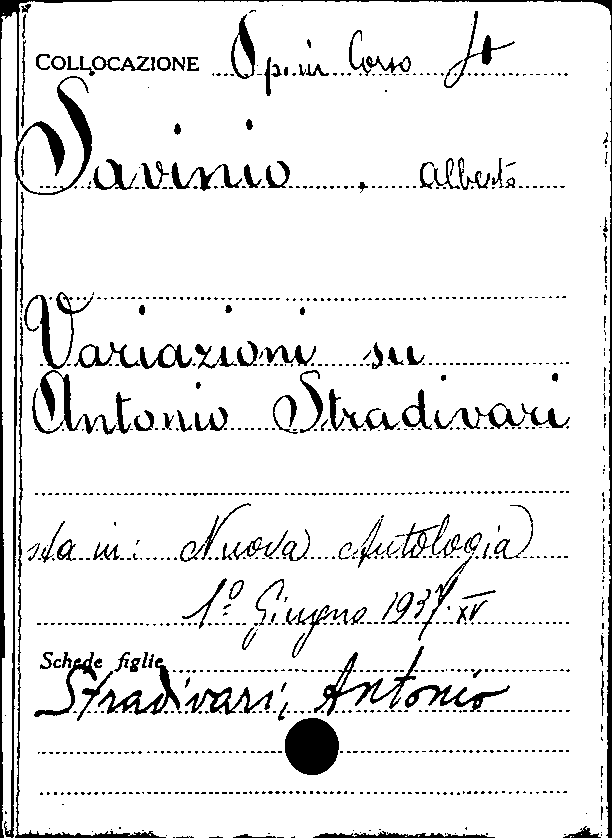 COLLOCAZIONE Op. in Corso
Savinio, Alberto
Variazioni su
Antonio Stradivari
sta in: Nuova Antologia
1º Giugno 1937·XV
Schede figlie
Stradivari, Antonio